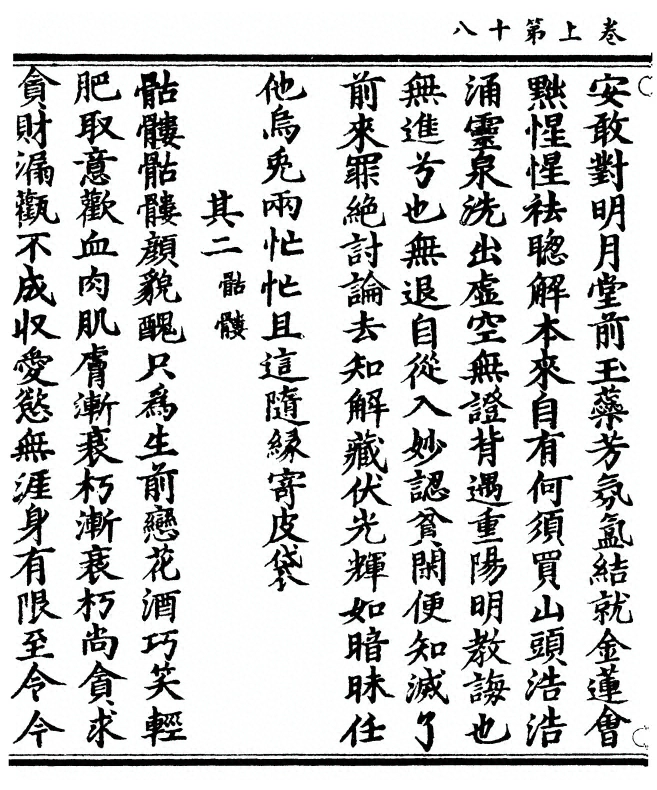 卷上第十八
安敢對明月堂前玉蘂芳氛氳結就金蓮會
黙惺惺祛聰解本來自有何須買山頭浩浩
涌靈泉洗出虛空無證背遇重陽明教誨也
無進兮也無退自從入妙認貧閑便知滅了
前來罪絶討論去知解藏伏光輝如暗昧任
他烏兎兩忙忙且這隨緣寄皮袋
其二骷髏
骷髏骷髏顏貌醜只爲生前戀花酒巧笑輕
肥取意歡血肉肌膚漸衰朽漸衰朽尚貪求
貪財漏罐不成収愛慾無涯身有限至令今